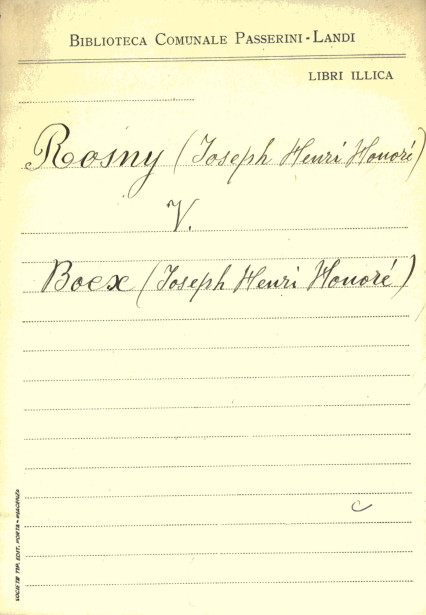 BIBLIOTECA COMUNALE PASSERINI-LANDI
LIBRI ILLICA
Rosny (Joseph Henri Honoré)
V.
Boex (Joseph Henri Honoré)
c
SOCIETÀ TIP. EDIT. PORTA - PIACENZA